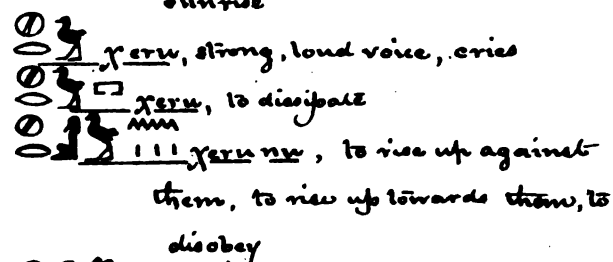 sunrise
𓐍𓂋𓅱 χeru, strong, loud voice, cries
𓐍𓂋𓅱𓉐 χeru, to dissipate
𓐍𓂋𓀀𓅱𓈖𓏥 χeru nu, to rise up against
them, to rise up towards them, to
disobey